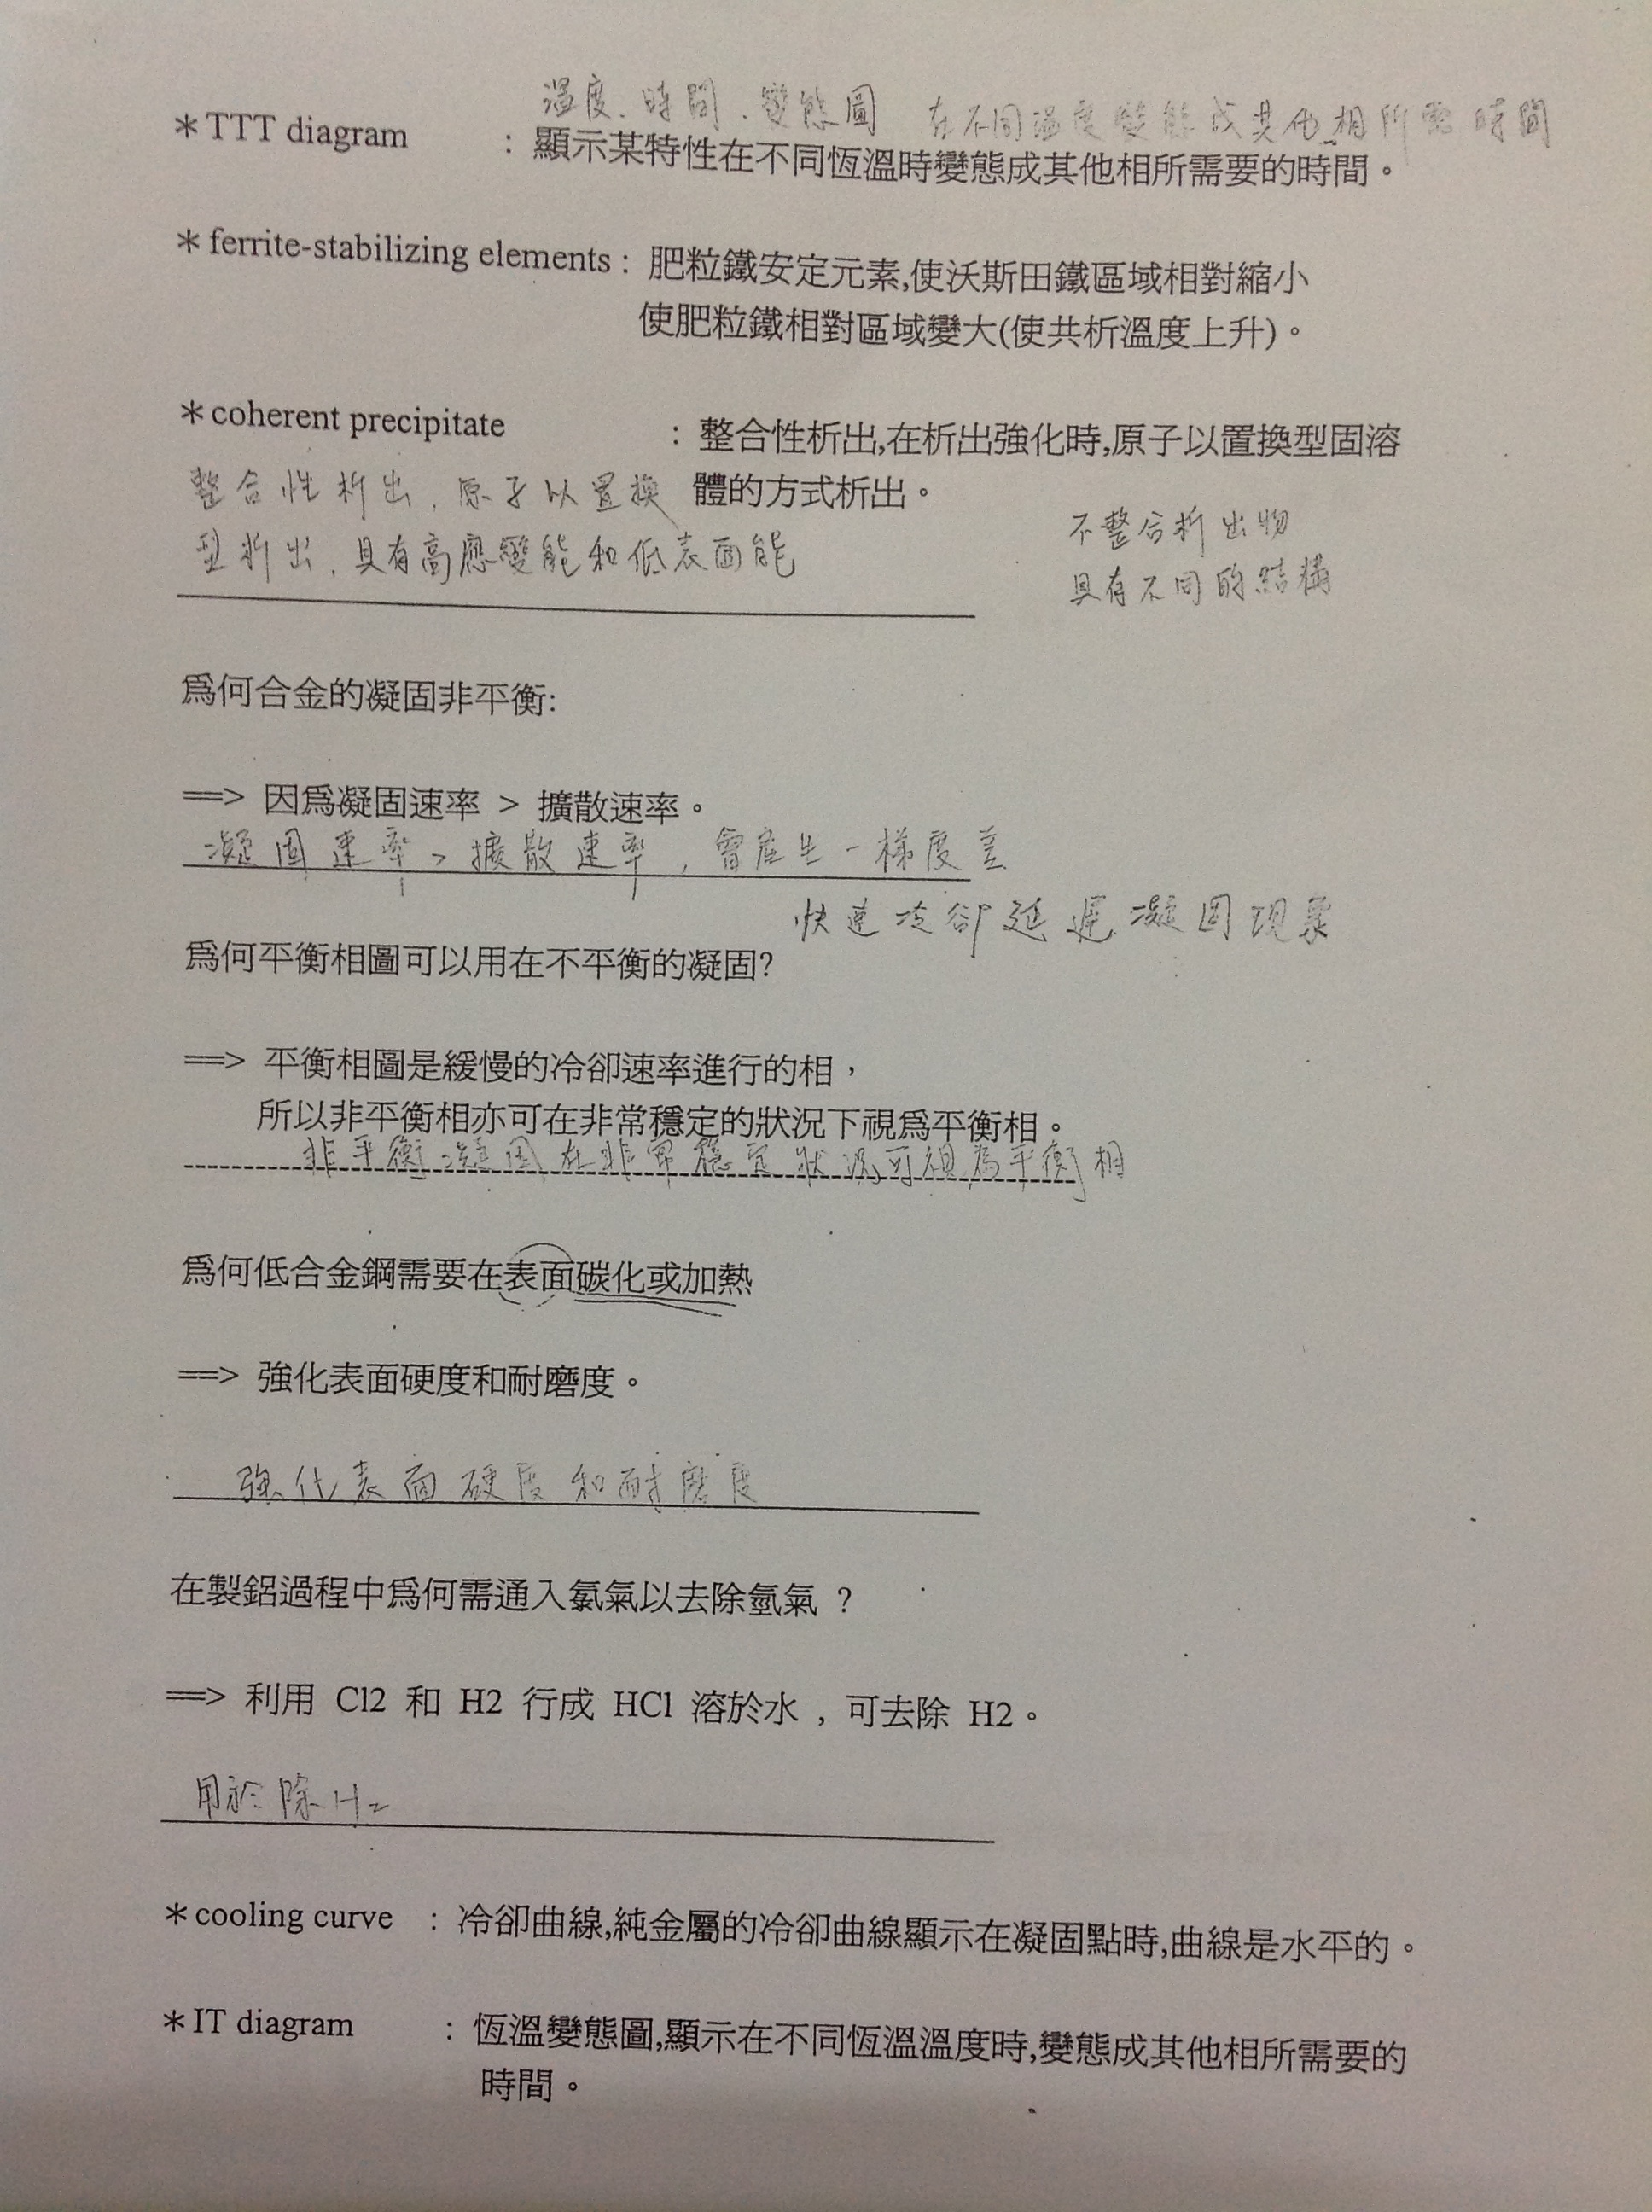 溫度、時間、變態圖 在不同溫度變態成其他相所需時間
＊TTT diagram : 顯示某特性在不同恆溫時變態成其他相所需要的時間。
＊ferrite-stabilizing elements : 肥粒鐵安定元素,使沃斯田鐵區域相對縮小
使肥粒鐵相對區域變大(使共析溫度上升)。
＊coherent precipitate : 整合性析出,在析出強化時,原子以置換型固溶
體的方式析出。
整合性析出，原子以置換
型析出，具有高應變能和低表面能
不整合析出物
具有不同的結構
爲何合金的凝固非平衡:
==> 因爲凝固速率 > 擴散速率。
凝固速率>擴散速率，會產生一梯度差
快速冷卻延遲凝固現象
爲何平衡相圖可以用在不平衡的凝固?
==> 平衡相圖是緩慢的冷卻速率進行的相，
所以非平衡相亦可在非常穩定的狀況下視爲平衡相。
非平衡凝固在非常穩定狀況可視為平衡相
爲何低合金鋼需要在表面碳化或加熱
==> 強化表面硬度和耐磨度。
強化表面硬度和耐磨度
在製鋁過程中爲何需通入氯氣以去除氫氣 ?
==> 利用 Cl2 和 H2 行成 HCl 溶於水 , 可去除 H2。
用於除H₂
＊cooling curve : 冷卻曲線,純金屬的冷卻曲線顯示在凝固點時,曲線是水平的。
＊IT diagram : 恆溫變態圖,顯示在不同恆溫溫度時,變態成其他相所需要的
時間。